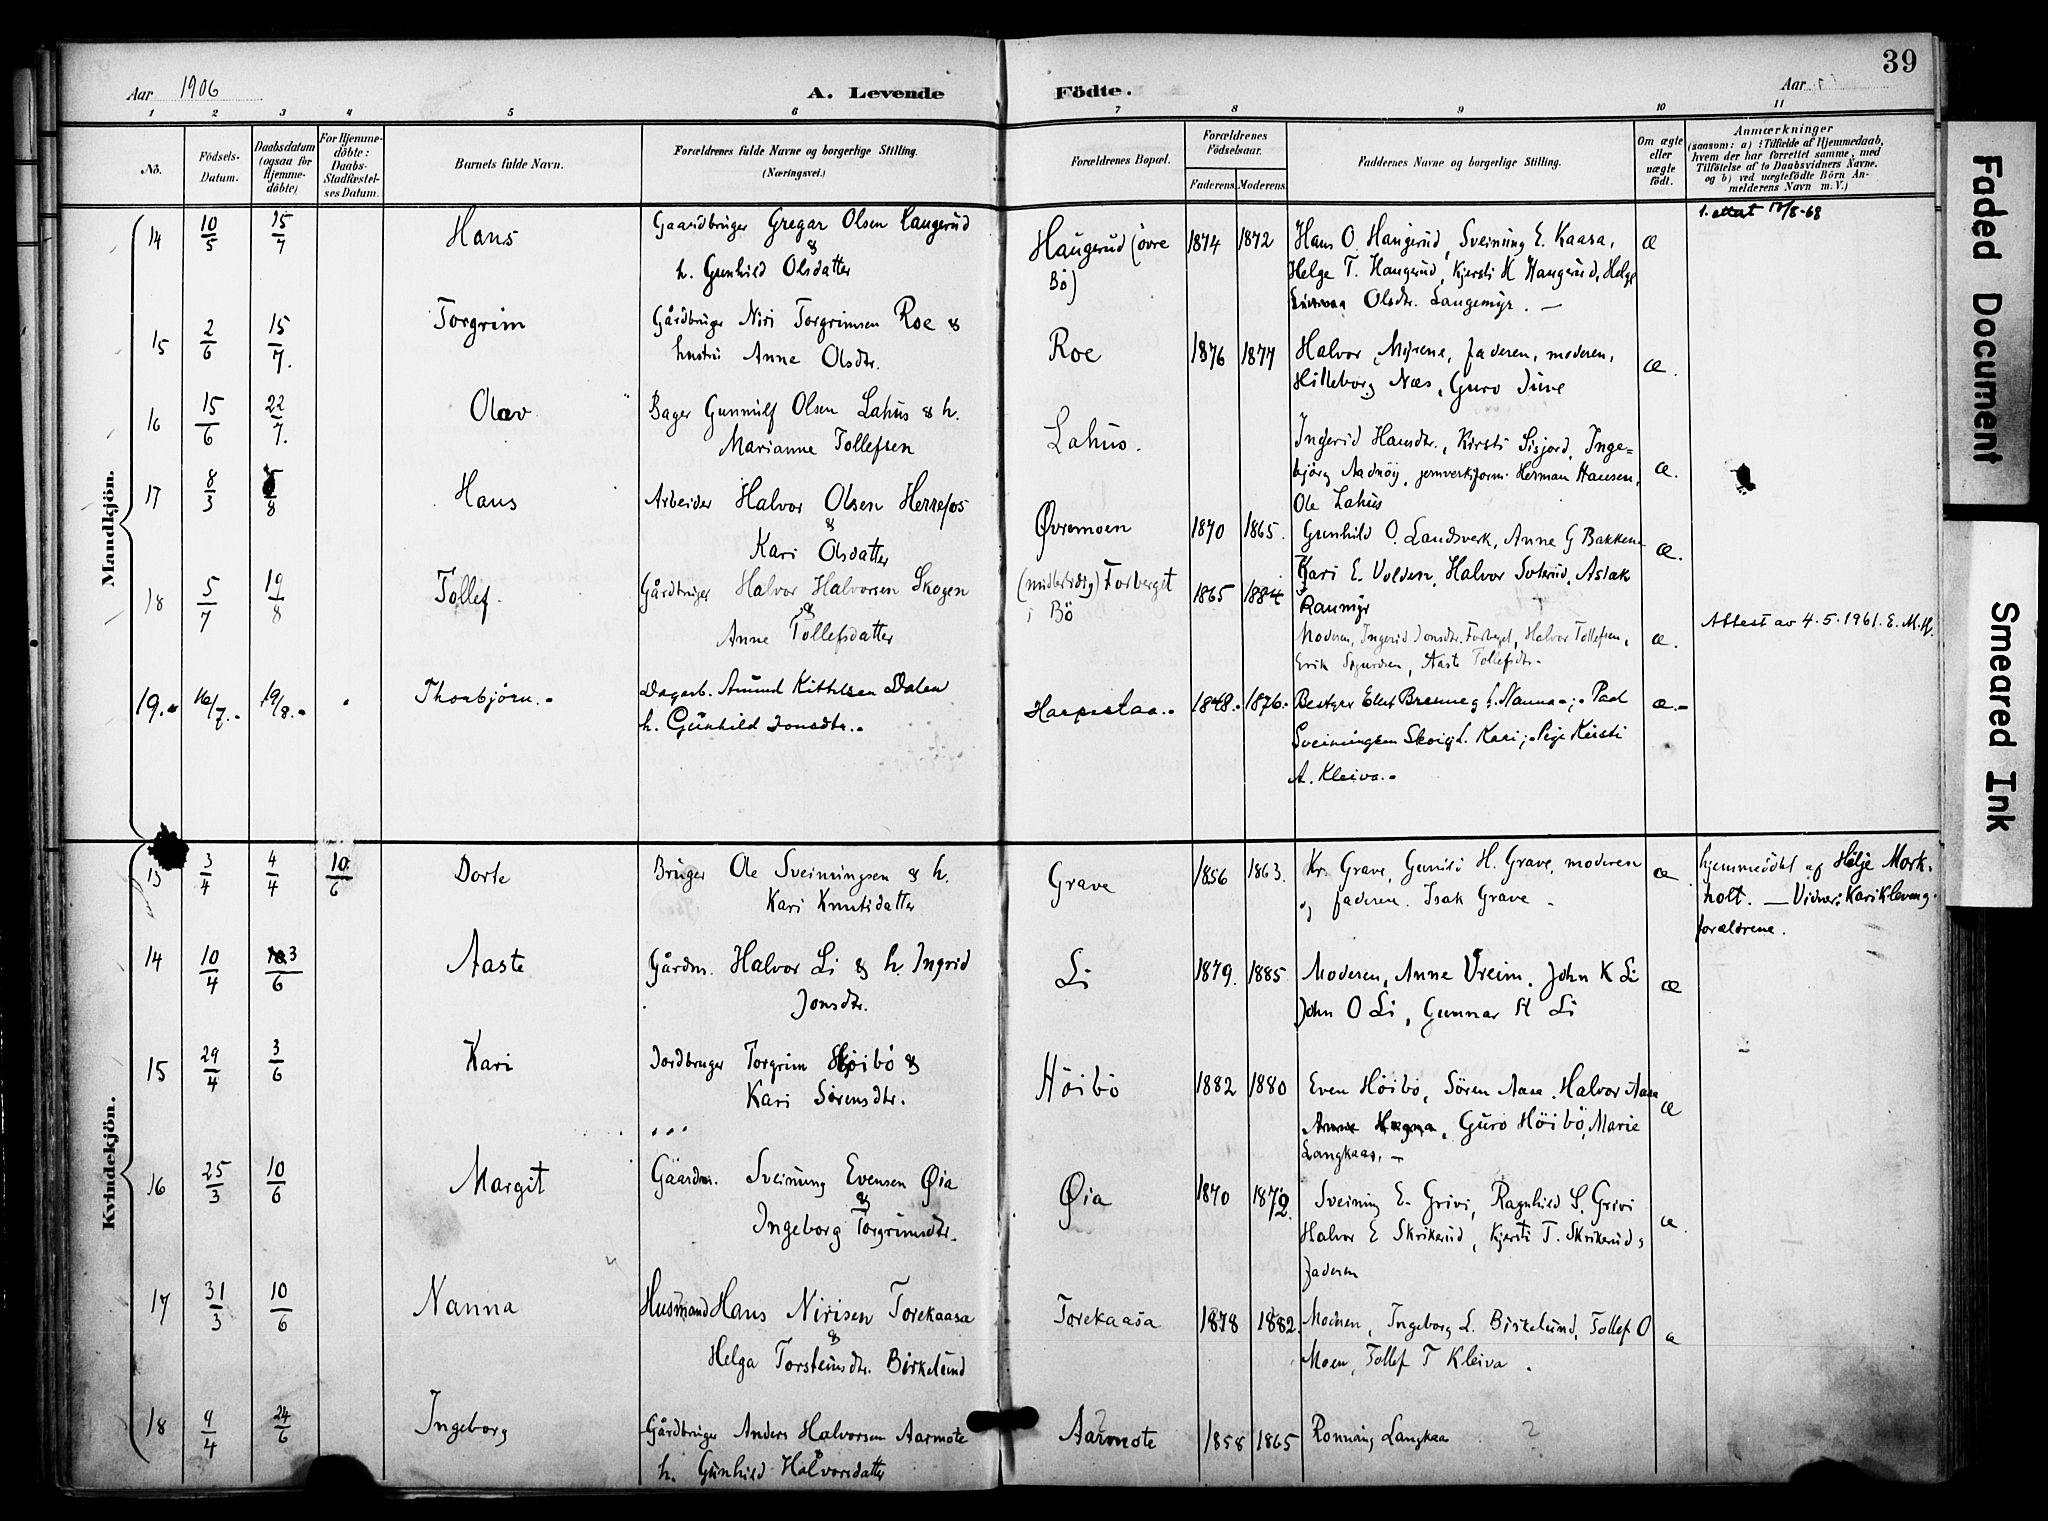 39
Aar 1906
A. Levende Födte.
Aar
1 2 3 4 5 6 7 8 9 10 11
No.
Födsels-Datum.
Daabsdatum (ogsaa for Hjemme-döbte)
For Hjemme-döbte: Daabs-Stadfæstel-ses Datum.
Barnets fulde Navn.
Forældrenes fulde Navne og borgerlige Stilling.
(Næringsvei.)
Forældrenes Bopæl.
Forældrenes Födselsaar.
Faderens. Moderens.
Faddernes Navne og borgerlige Stilling.
Om ægte eller uægte födt.
Anmærkninger
(saasom: a) i Tilfælde af Hjemmedaab,
hvem der har forrettet samme, med
Tilföielse af to Daabsvidners Navne.
og b) ved uægtefödte Börn An-
melderens Navn m. V.)
Mandkjön.
14 10/5 15/7 Hans Gaardbruger Gregar Olsen Haugerud Haugerud (övre 1874 1872 Hans O. Haugerud, Sveinung E. Kaasa, æ
& h. Gunhild Olsdatter Bö) Helge T. Haugerud, Kjersti H Haugerud, Helge
Olsdtr. Langemyr. —
15 2/6 15/7. Torgrim Gårdbruger Niri Torgrimsen Roe & Roe 1876 1877 Halvor Myrene, faderen, moderen, æ.
hustru Anne Olsdtr. Hilleborg Næs, Guro
16 15/6 22/7. Olav Bager Gunnulf Olsen Lahus & h. Lahus. Ingerid Hansdtr., Kirsti Sisjord, Inge- æ.
Marianne Tollefsen björg Aadnöy, Herman Hansen,
Ole Lahus
17 8/3 5/8 Hans Arbeider Halvor Olsen Herrefos Øvremoen 1870 1865. Gunhild O. Landsverk, Anne G Bakken æ.
& Kari Olsdatter Kari E. Volden, Halvor Aslak
18 5/7 19/8 Tollef. Gårdbruger Halvor Halvorsen Skogen (midlertidig) Forberget 1865 1884 Raumyr
& Anne Tollefsdatter i Bö Moderen, Ingerid Jonsdtr. Forberget, Halvor Tollefsen, æ. Attest av 4.5.1961. E.M.H.
Erik Sigurdsen, Aaste Tollefsdtr.
19. 16/7. 19/8. Thorbjörn. Dagarb. Amund Kittelsen Dalen 1848. 1876. Bestyrer Elef Brenne og h. Nanna; Paal æ.
h. Gunhild Jonsdtr. Sveinungsen Skoie h. Kari; Pige Kirsti
A. Kleiva.
Kvindekjön.
13 3/4 4/4 10/6 Dorte Bruger Ole Sveinungsen & h. Grave 1856 1863. Kr. Grave, H. Grave, moderen æ hjemmedöbt af Helje Mork-
Kari Knutsdatter og faderen. Isak Grave. holt. — Vidner: Kari Kleven og
forældrene.
14 10/4 3/6 Aaste Gårdm. Halvor Li & h. Ingrid Li 1879. 1885. Moderen, Anne Vreim. John K Li æ
Jonsdtr. John O Li, Gunnar H Li
15 29/4 3/6 Kari Jordbruger Torgrim Höibö & Höibö 1882 1880 Even Höibö, Sören Aasa, Halvor Aasa æ
Kari Sörensdtr. Anne Hegna, Guro Höibö, Marie
Langkaas. —
16 25/3 10/6 Margit Gaardm. Sveinung Evensen Øia Øia 1870 1872. Sveinung E. Grivi, Ragnhild S. Grivi æ
& Ingeborg Torgrimsdtr. Halvor E Skrikerud, Kjersti T. Skrikerud,
faderen
17 31/3 10/6 Nanna Husmand Hans Nirisen Torekaasa Torekaasa 1878 1882. Moderen, Ingeborg L. Birkelund, Tollef O æ
& Helga Torsteinsdtr. Birkelund Moen, Tollef T Kleiva.
18 9/4 24/6 Ingeborg Gårdbruger Anders Halvorsen Aarmote Aarmote 1858 1865 Ronnaug Langkaas ?
& h. Gunhild Halvorsdatter
1. attest 12/8-68
Faded Document
Smeared Ink